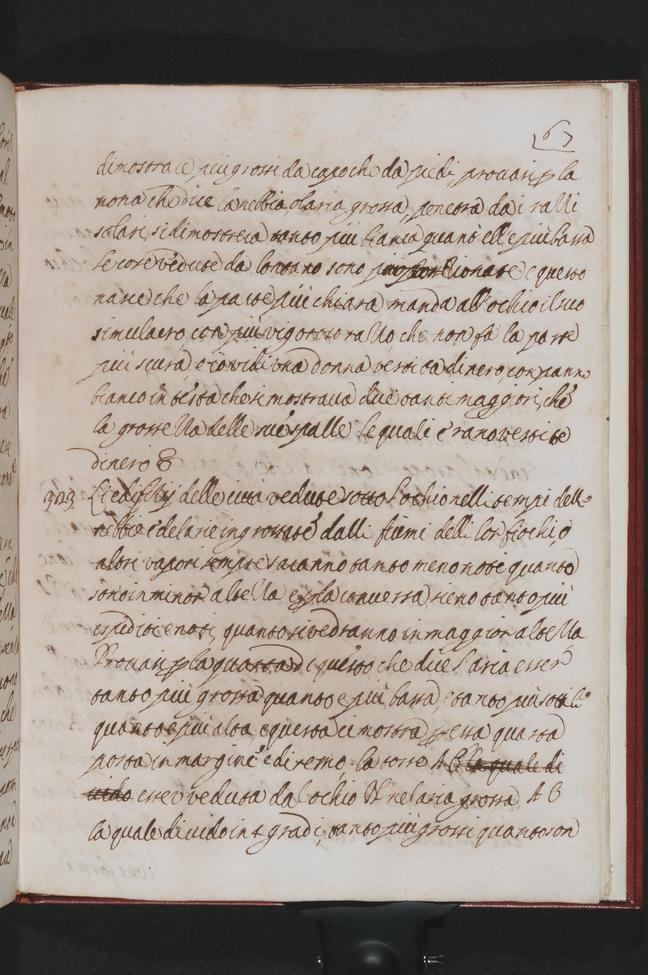 67
dimostrare più grossi da capo che da piedi prouasi p la
nona che dice la nebbia, o l'aria grossa, penetrata da i razzi
solari, si dimostrera tanto più bianca quanto ell'è più bassa
le cose vedute da lontano sono e questo
nasce che la parte più chiara manda all'ochio il suo
simulacro, con più vigoroso razzo che non fa la parte
più scura et io vidi una donna vestita di nero, con panno
bianco in testa che si mostraua due tanti maggiori, che
la grossezza delle sue spalle le quali erano vestite
di nero
503. Li edifitij delle città vedute sotto l'ochio nelli tempi delle
nebbie e de l'arie ingrossate dalli fiumi delli lor fiochi, o
altri vapori sempre saranno tanto meno note quanto
sono in minor altezza e p la conuersa sieno tanto più
espedite e note, quanto si vedranno in maggior altezza
Prouasi p la quarta di questo che dice l'aria esser
tanto più grossa quanto e più bassa, e tanto più sottile
quanto è più alta, e questa ci mostra p essa quarta
posta in margine e diremo la torre AB la quale di
uido esser veduta da l'ochio nel aria grossa AB
la quale diuido in 4 gradi, tanto più grossi quanto son